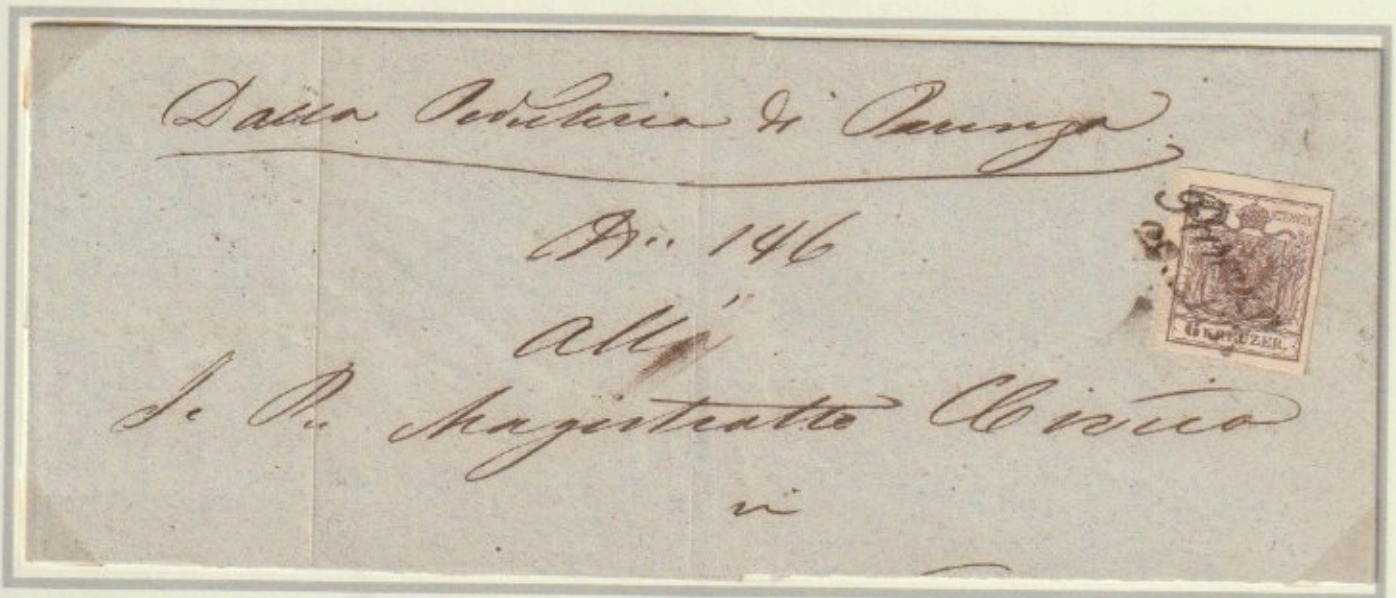 Dalla di Parenzo
No: 146
All'
I. R. Magistratto Civico
in
6 KREUZER.